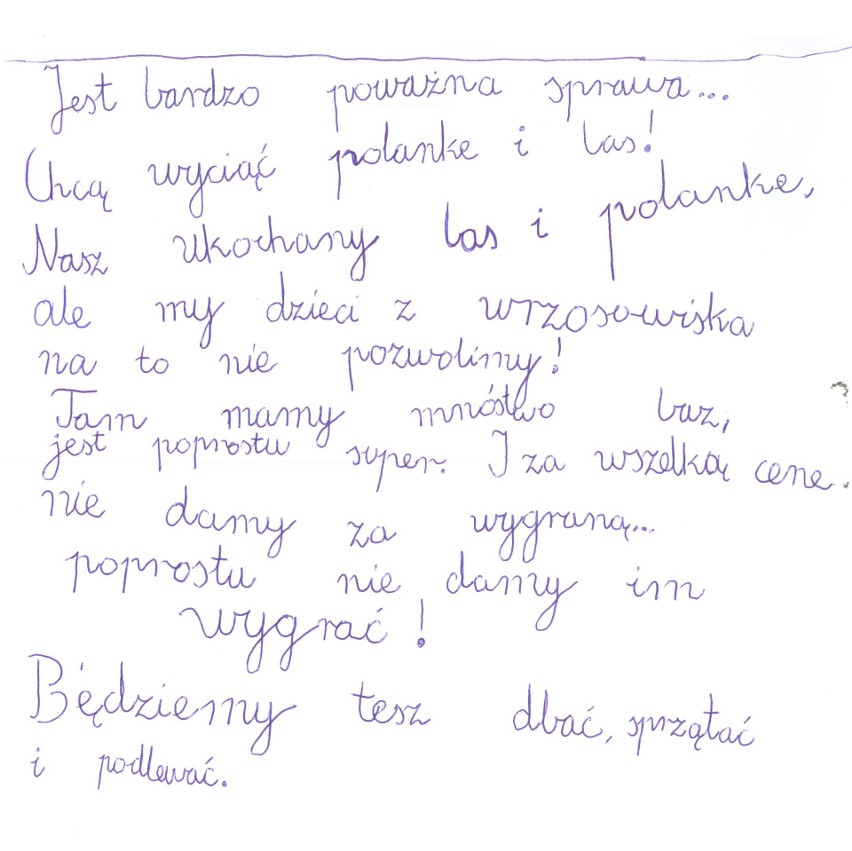 Jest bardzo poważna sprawa...
Chcą wyciąć polanke i las!
Nasz ukochany las i polanke,
ale my dzieci z wrzosowiska
na to nie pozwolimy!
Tam mamy mnóstwo baz,
jest poprostu super. I za wszelką cene.
nie damy za wygraną...
poprostu nie damy im
wygrać!
Będziemy tesz dbać, sprzątać
i podlewać.